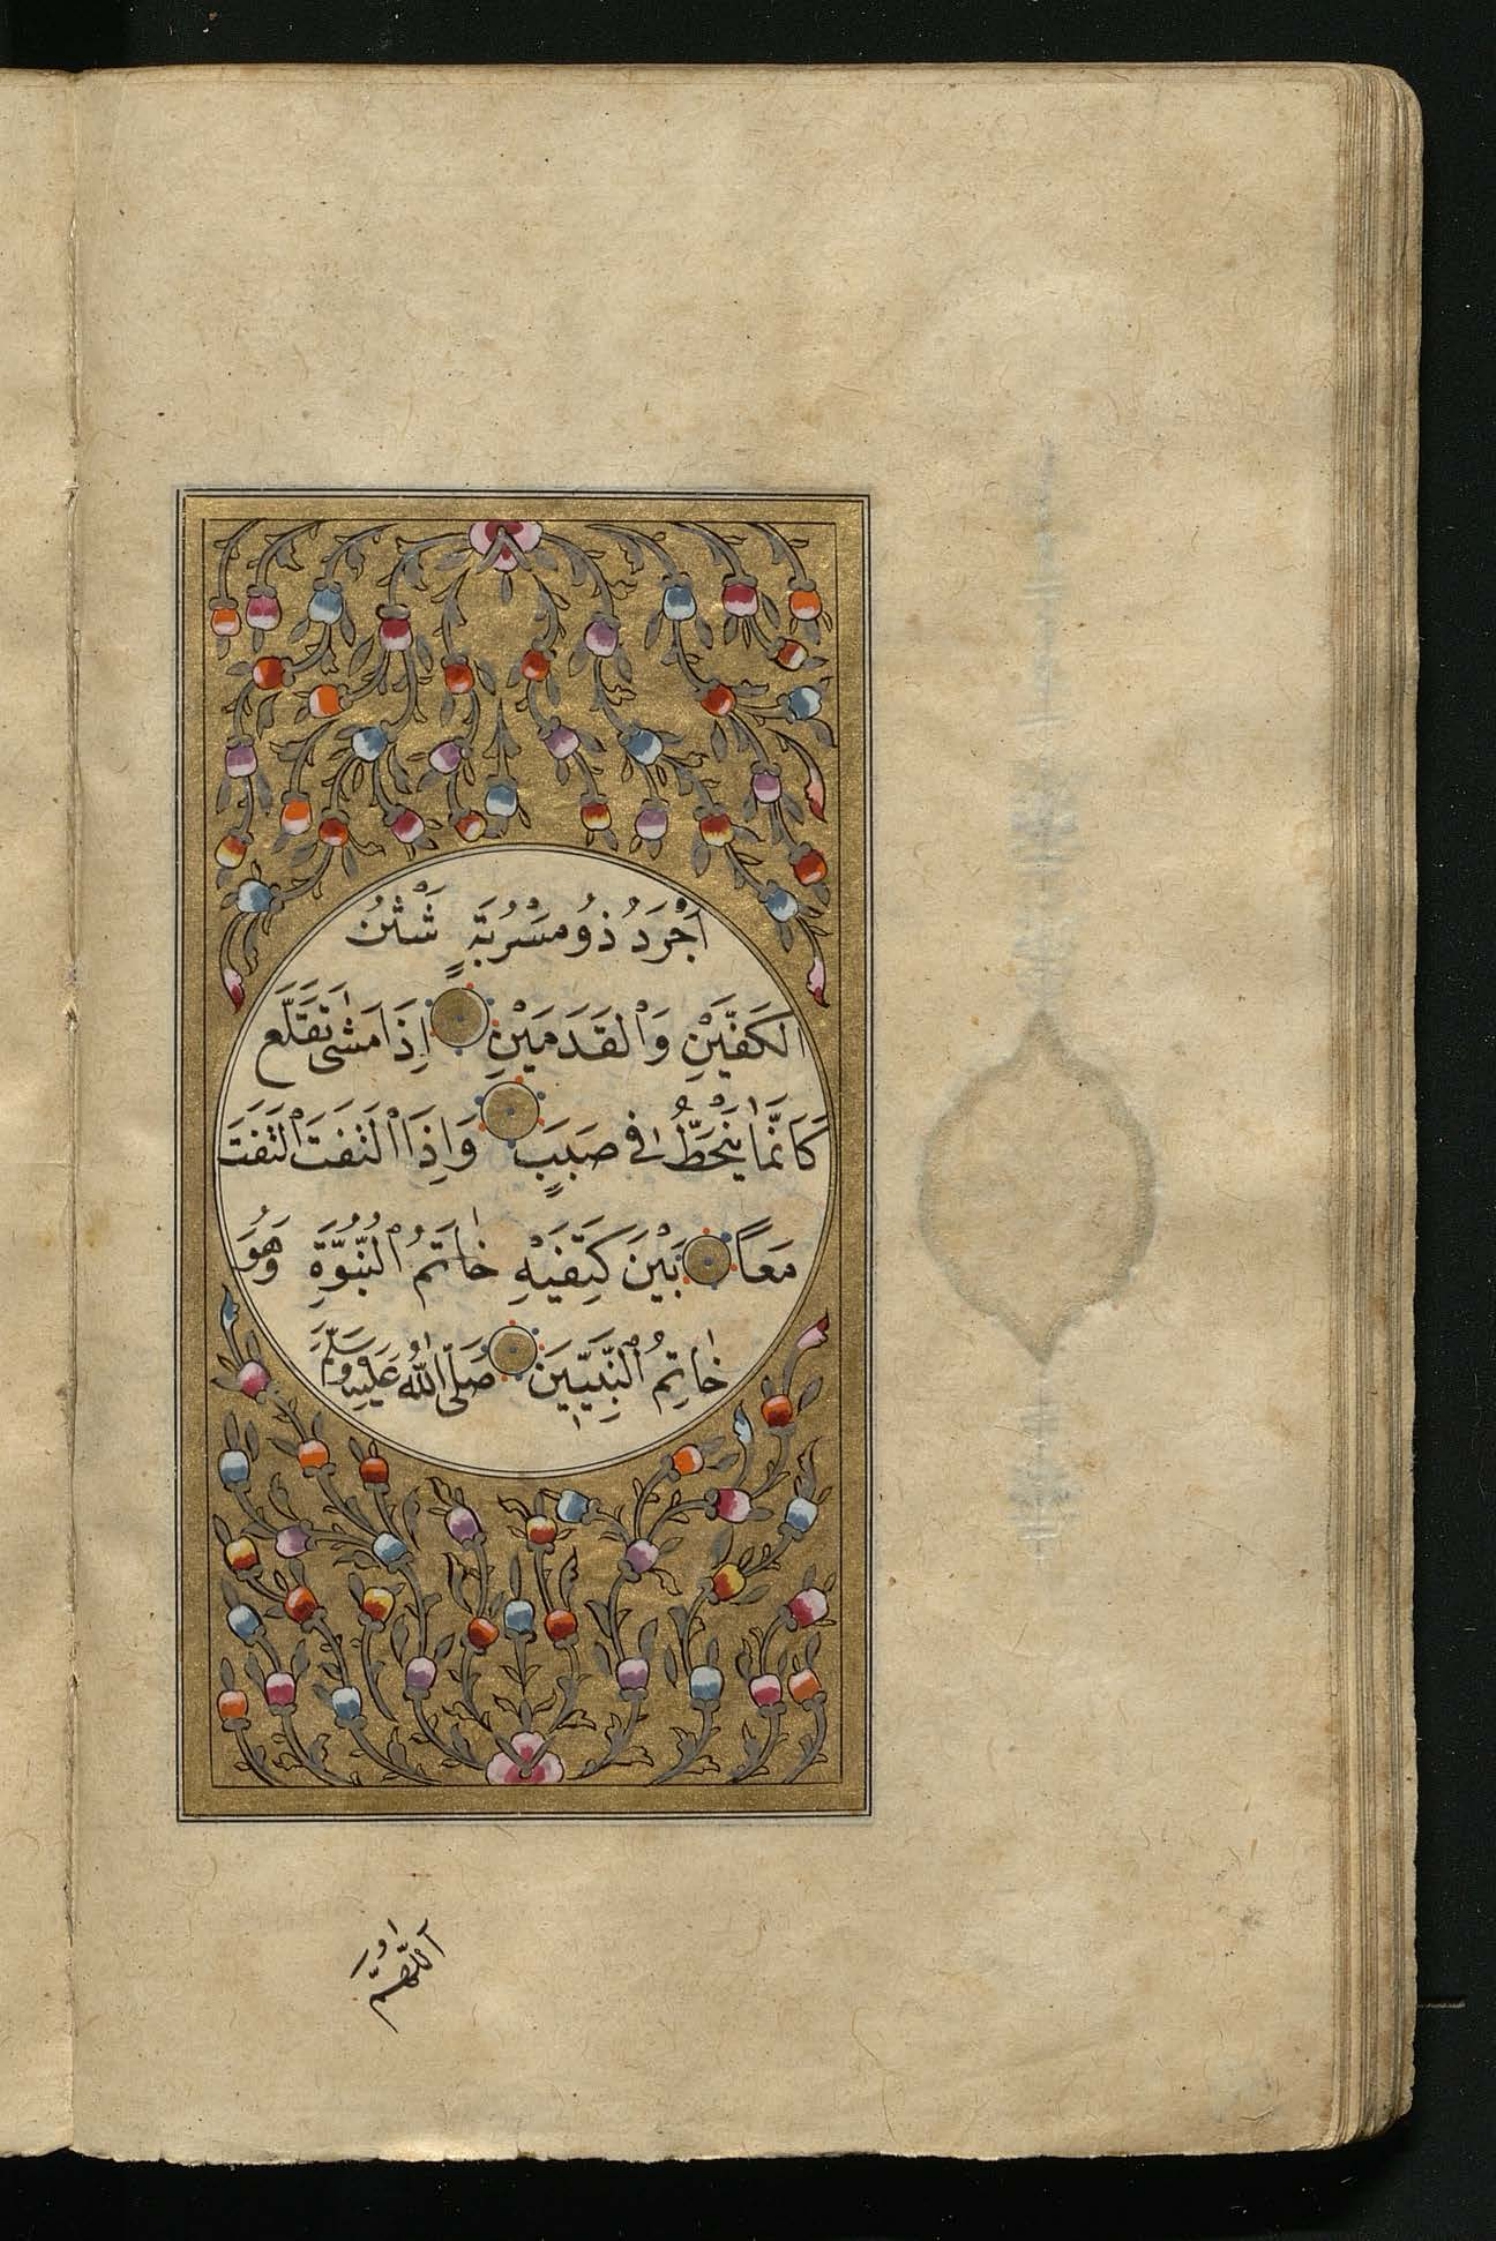 أَجْرَدُ ذُو مَسْرُبَةٍ شَثْنُ
الكَفَّيْنِ وَالْقَدَمَيْنِ اِذَا مَشٰى تَقَلَّع
كَاَنَّمَا يَنْحَطُّ فِى صَبَبٍ وَاِذَا الْتَفَتَ الْتَفَتَ
مَعًا بَيْنَ كَتِفَيْهِ خَاتَمُ النُّبُوَّةِ وَهُوَ
خَاتِمُ النَّبِيّينَ صَلَّى اللّٰهُ عَلَيْهِ وَسَلَّمَ
اَللّٰهُمَّ